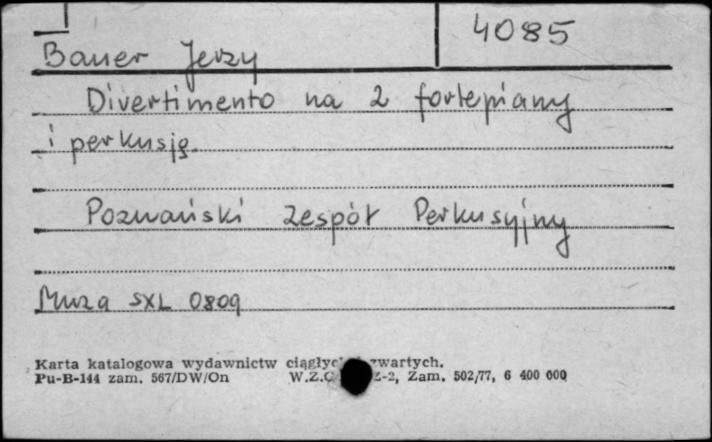 4085
Bauer Jerzy
Divertimento na 2 fortepiany
i perkusję.
Poznański zespół Perkusyjny
Muza SXL 0809
Karta katalogowa wydawnictw zwartych.
Pu-B-144 zam. 567/DW/On W.Z.G. Z-2, Zam. 502/77, 6 400 000